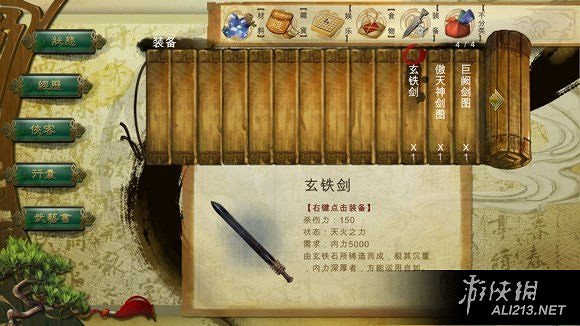 材料
雜貨
娱乐
食物
装备
不分类
4 / 4
装备
玄铁剑
X1
傲天神剑图
X1
巨阙剑图
X1
狀態
經歷
俠客
行囊
武藝書
玄铁剑
【右键点击装备】
杀伤力：150
状态：天火之力
需求：内力5000
由玄铁石所铸造而成，极其沉重
，内力深厚者，方能运用自如。
游侠網
ALI213.NET